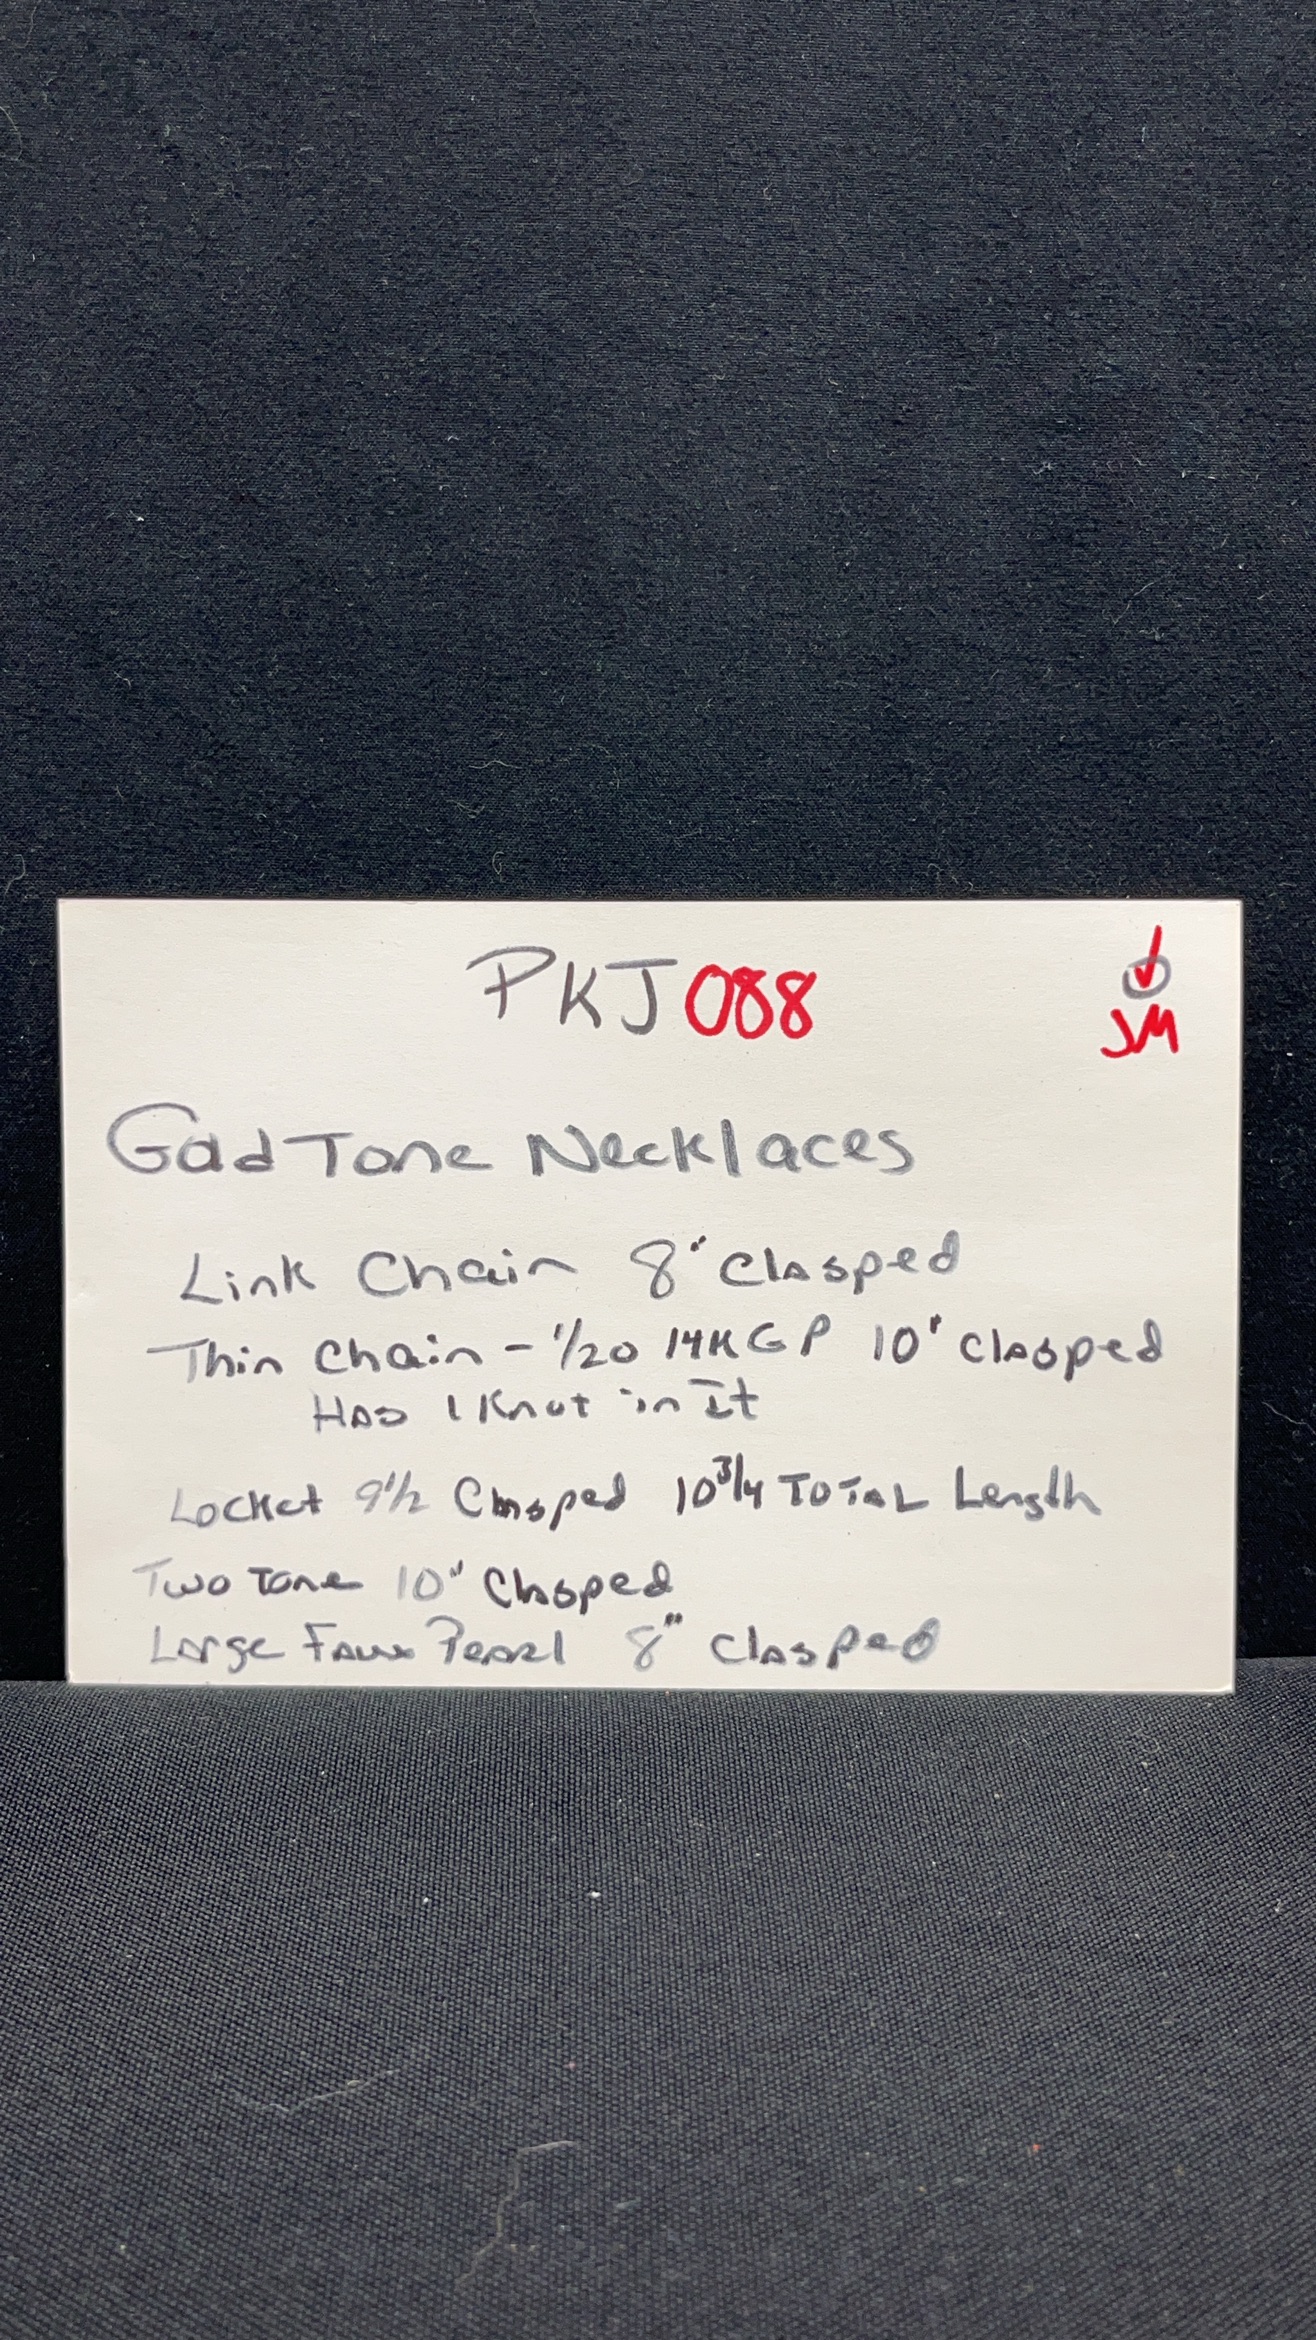 PKJ 088
✓
JM
Gold Tone Necklaces
Link Chain 8" Clasped
Thin Chain - 1/20 14K GP 10" Clasped
Has 1 Knot in It
Locket 9 1/2 Clasped 10 3/4 Total Length
Two Tone 10" Clasped
Large Faux Pearl 8" Clasped